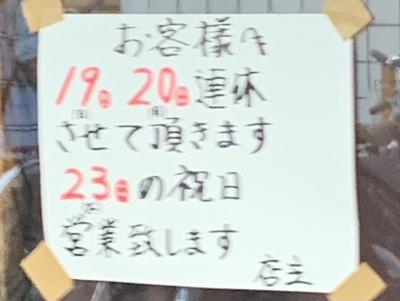 お客様へ
19日 20日連休
(日) (月)
させて頂きます
23日の祝日
(木)
営業致します
店主